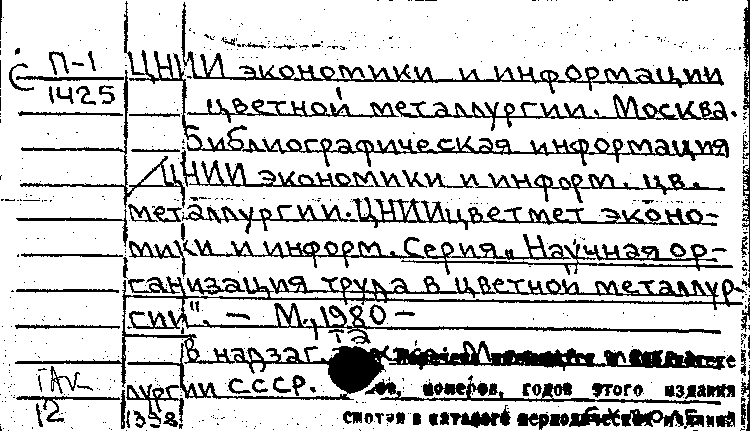 С П-1 ЦНИИ экономики и информации
1425 цветной металлургии. Москва.
Библиографическая информация
/ЦНИИ экономики и информ. цв.
металлургии.ЦНИИцветмет эконо-
мики и информ. Серия „Научная ор-
ганизация труда в цветной металлур-
гии". — М., 1980 —
В надзаг.
лургии СССР. номеров, годов этого издания
12 1358 смотри в каталоге периодических изданий